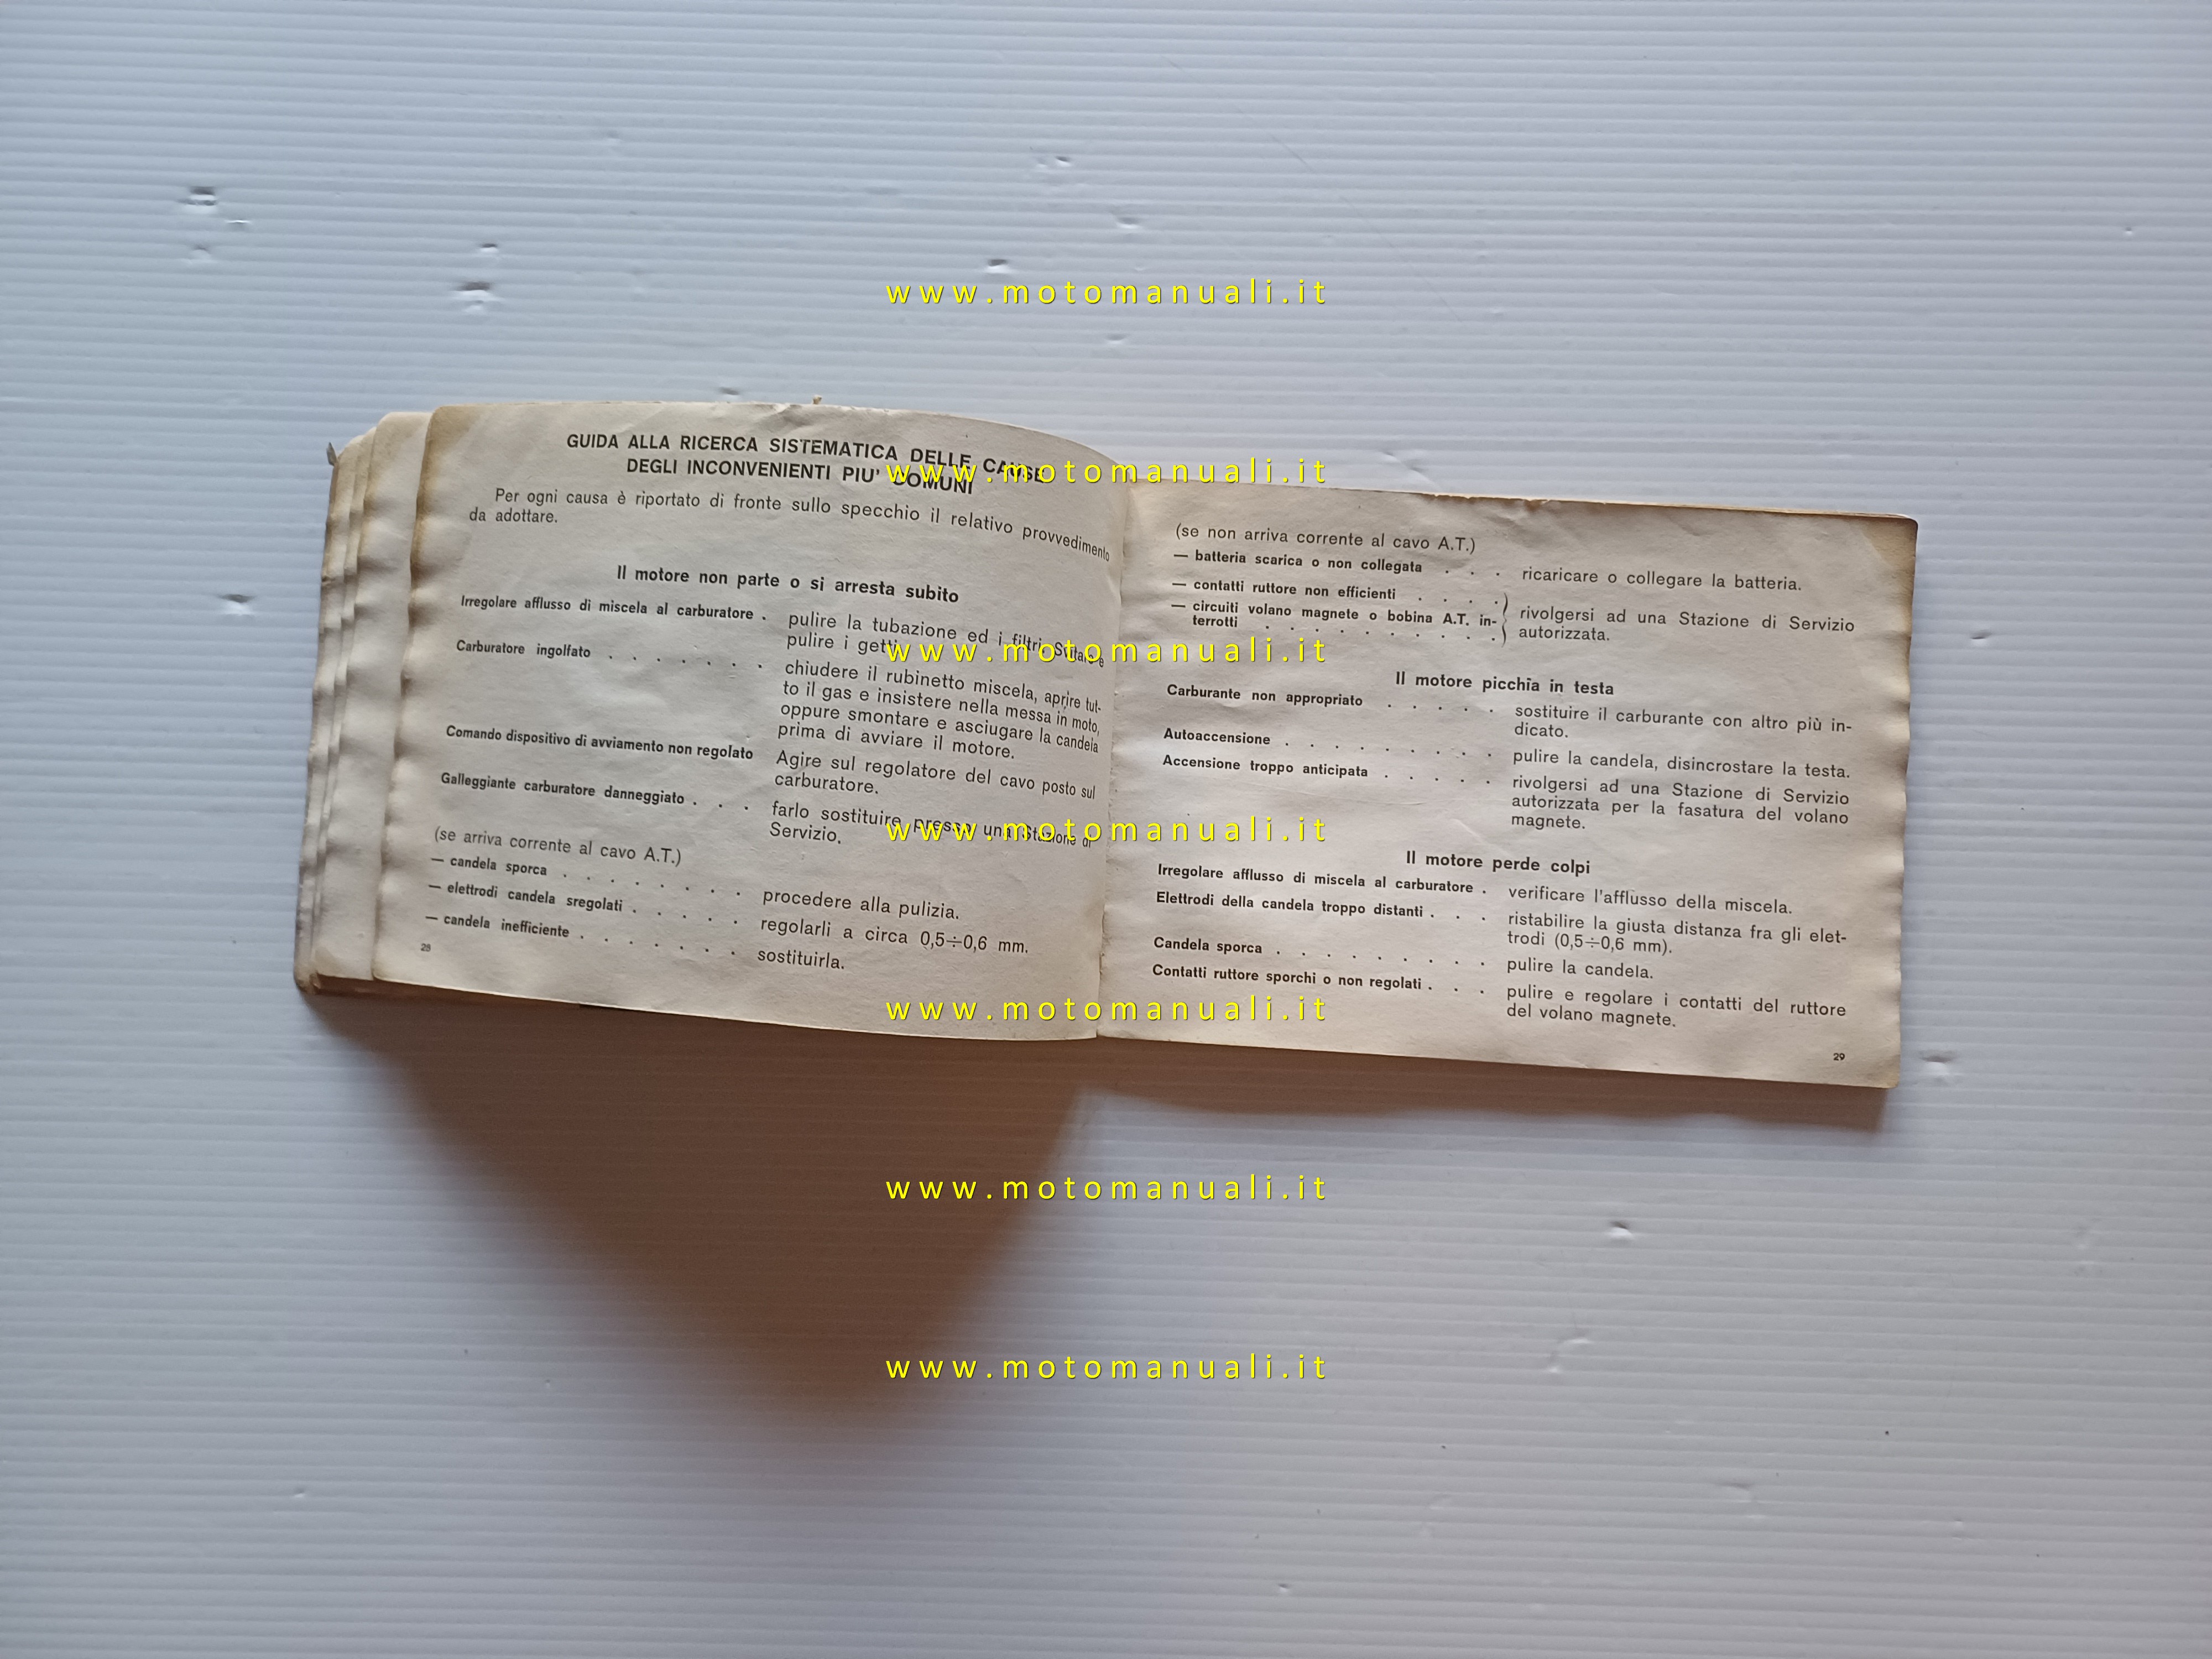 www.motomanuali.it
GUIDA ALLA RICERCA SISTEMATICA DELLE CAUSE
DEGLI INCONVENIENTI PIU' COMUNI
Per ogni causa è riportato di fronte sullo specchio il relativo provvedimento
da adottare.
Il motore non parte o si arresta subito
Irregolare afflusso di miscela al carburatore . pulire la tubazione ed i filtri. Svitare e
pulire i getti.
Carburatore ingolfato . . . . . . . chiudere il rubinetto miscela, aprire tut-
to il gas e insistere nella messa in moto,
oppure smontare e asciugare la candela
prima di avviare il motore.
Comando dispositivo di avviamento non regolato Agire sul regolatore del cavo posto sul
carburatore.
Galleggiante carburatore danneggiato . . . farlo sostituire presso una Stazione di
Servizio.
(se arriva corrente al cavo A.T.)
— candela sporca . . . . . . . . procedere alla pulizia.
— elettrodi candela sregolati . . . . . regolarli a circa 0,5÷0,6 mm.
— candela inefficiente . . . . . . . sostituirla.
28
(se non arriva corrente al cavo A.T.)
— batteria scarica o non collegata . . . ricaricare o collegare la batteria.
— contatti ruttore non efficienti . . . .
— circuiti volano magnete o bobina A.T. in-
terrotti . . . . . . . . . .
rivolgersi ad una Stazione di Servizio
autorizzata.
Il motore picchia in testa
Carburante non appropriato . . . . . sostituire il carburante con altro più in-
dicato.
Autoaccensione . . . . . . . . . pulire la candela, disincrostare la testa.
Accensione troppo anticipata . . . . . rivolgersi ad una Stazione di Servizio
autorizzata per la fasatura del volano
magnete.
Il motore perde colpi
Irregolare afflusso di miscela al carburatore . verificare l'afflusso della miscela.
Elettrodi della candela troppo distanti . . . ristabilire la giusta distanza fra gli elet-
trodi (0,5÷0,6 mm).
Candela sporca . . . . . . . . . pulire la candela.
Contatti ruttore sporchi o non regolati . . . pulire e regolare i contatti del ruttore
del volano magnete.
29
www.motomanuali.it
www.motomanuali.it
www.motomanuali.it
www.motomanuali.it
www.motomanuali.it
www.motomanuali.it